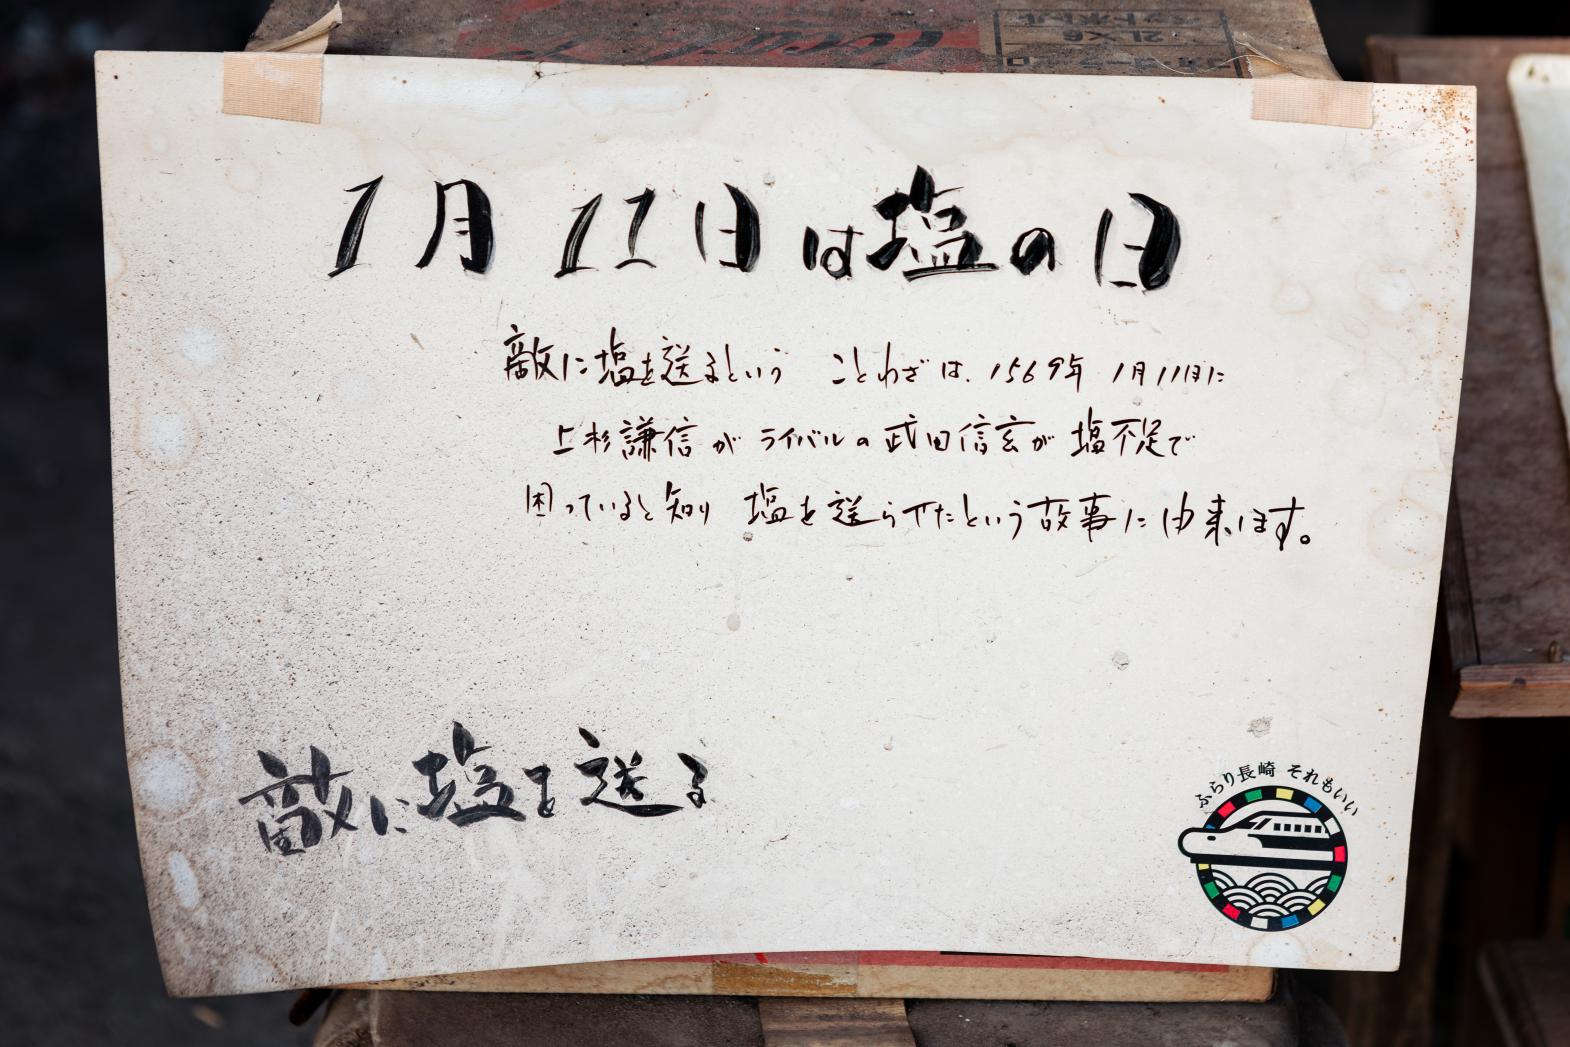 1月11日は塩の日
敵に塩を送るという ことわざは、1569年 1月11日に
上杉謙信が ライバルの武田信玄が 塩不足で
困っていると知り 塩を送らせたという故事に由来します。
敵に塩を送る
ふらり長崎 それもいい
ペットボトル
2L×6